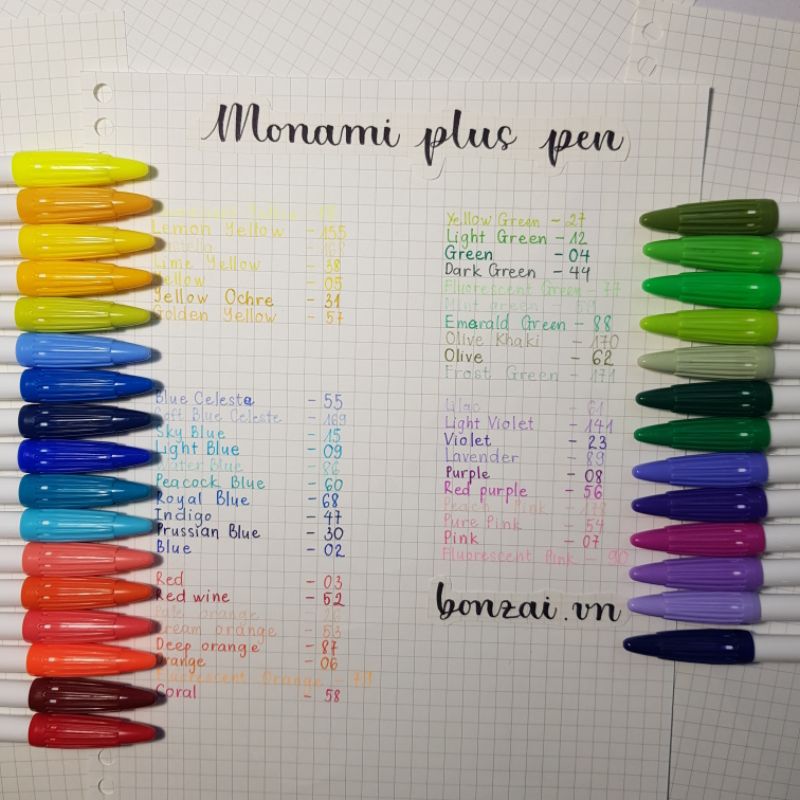 Monami plus pen
Lemon Yellow - 155
Lime Yellow - 38
Yellow - 05
Yellow Ochre - 31
Golden Yellow - 57
Blue Celeste - 55
Soft Blue Celeste - 169
Sky Blue - 15
Light Blue - 09
Water Blue - 86
Peacock Blue - 60
Royal Blue - 68
Indigo - 47
Prussian Blue - 30
Blue - 02
Red - 03
Red wine - 52
Pale orange
Cream orange - 53
Deep orange - 87
Orange - 06
Fluorescent Orange
Coral - 58
Yellow Green - 27
Light Green - 12
Green - 04
Dark Green - 44
Fluorescent Green - 77
Mint green
Emerald Green - 88
Olive Khaki - 170
Olive - 62
Frost Green - 171
Lilac - 61
Light Violet - 141
Violet - 23
Lavender - 89
Purple - 08
Red purple - 56
Peach Pink
Pure Pink - 54
Pink - 07
Fluorescent Pink - 90
bonzai.vn